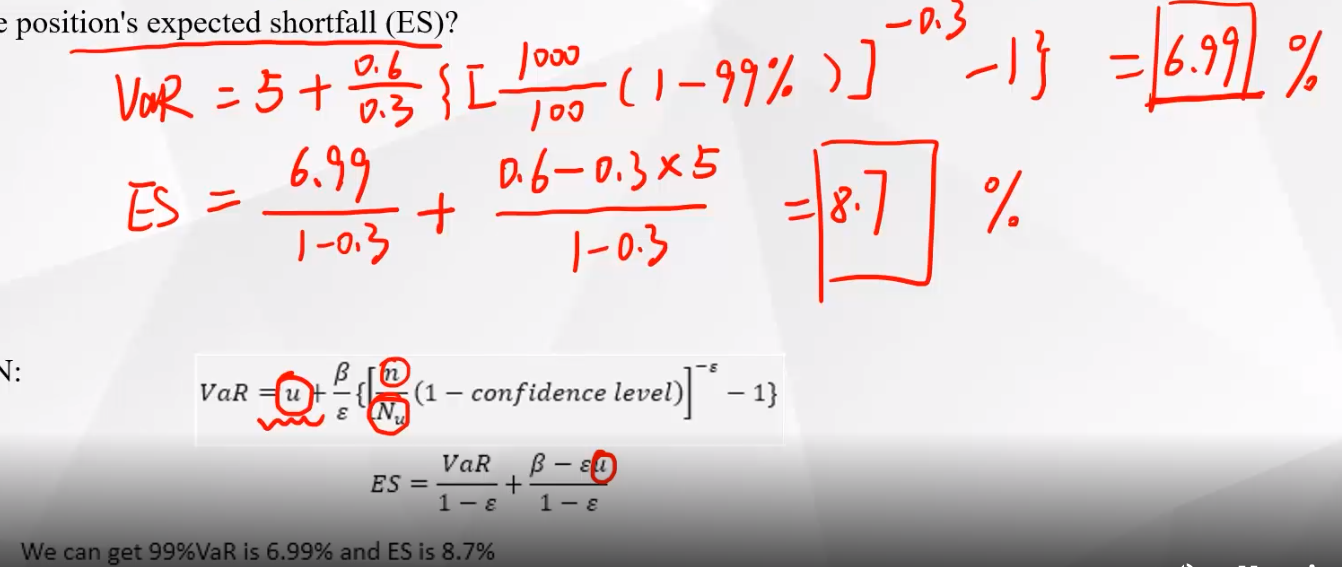 e position's expected shortfall (ES)?
VaR = 5 + 0.6/0.3 {[1000/100 (1-99%)]^-0.3 -1} = 6.99 %
ES = 6.99/(1-0.3) + (0.6-0.3×5)/(1-0.3) = 8.7 %
N:
VaR = u + β/ε {[n/Nᵤ (1 − confidence level)]^-ε − 1}
ES = VaR/(1 − ε) + (β − εu)/(1 − ε)
We can get 99%VaR is 6.99% and ES is 8.7%